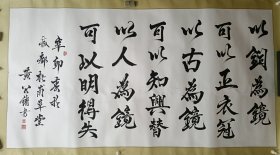 以銅為鏡
可以正衣冠
以古為鏡
可以知興替
以人為鏡
可以明得失
辛卯
成都杜甫草堂
書